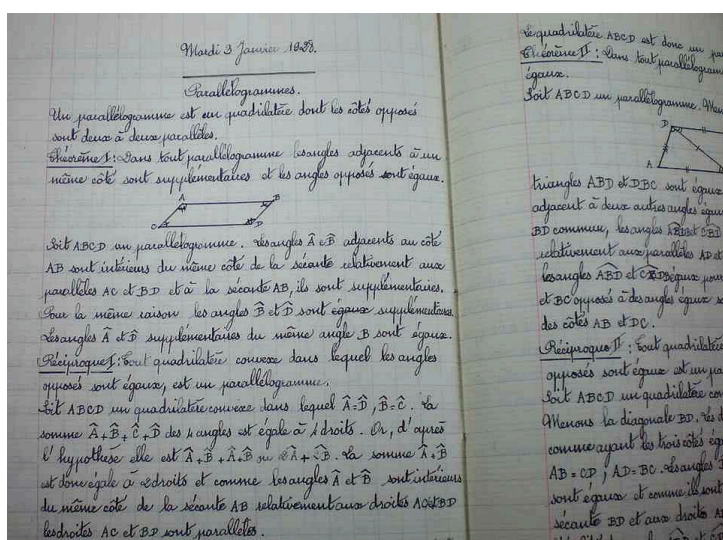 Mardi 3 Janvier 1928.
Parallélogrammes.
Un parallélogramme est un quadrilatère dont les côtés opposés
sont deux à deux parallèles.
Théorème I : Dans tout parallélogramme les angles adjacents à un
même côté sont supplémentaires et les angles opposés sont égaux.
A B
C D
Soit ABCD un parallélogramme. Les angles Â et B̂ adjacents au côté
AB sont intérieurs du même côté de la sécante relativement aux
parallèles AC et BD et à la sécante AB, ils sont supplémentaires.
Pour la même raison les angles B̂ et D̂ sont égaux supplémentaires.
Les angles Â et D̂ supplémentaires du même angle B sont égaux.
Réciproque I : Tout quadrilatère convexe dans lequel les angles
opposés sont égaux, est un parallélogramme.
Soit ABCD un quadrilatère convexe dans lequel Â=D̂, B̂=Ĉ. La
somme Â+B̂+Ĉ+D̂ des 4 angles est égale à 4 droits. Or, d'après
l'hypothèse elle est Â+B̂+Â+B̂ ou 2Â+2B̂. La somme Â+B̂
est donc égale à 2 droits et comme les angles Â et B̂ sont intérieurs
du même côté de la sécante AB relativement aux droites AC et BD
les droites AC et BD sont parallèles.
Le quadrilatère ABCD est donc un
Théorème II : Dans tout
égaux.
Soit ABCD un parallélogramme.
D
A
triangles ABD et DBC sont égaux
adjacent à deux autres angles
BD commun, les angles
relativement aux parallèles AD et
les angles ABD et
et BC opposés à des angles égaux
des côtés AB et DC.
Réciproque II : Tout quadrilatère
opposés sont égaux est un
Soit ABCD un quadrilatère
Menons la diagonale BD. Les
comme ayant les trois côtés
AB = CD, AD = BC. Les angles
sont égaux et comme ils sont
sécante BD et aux droites